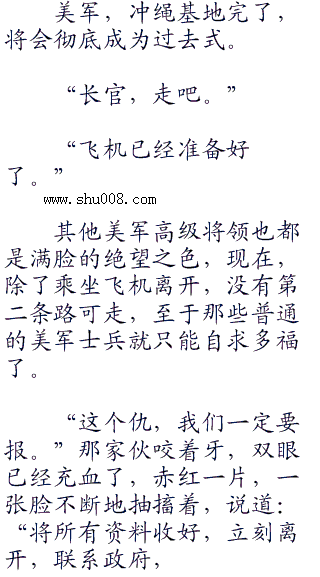 美军，冲绳基地完了，
将会彻底成为过去式。
“长官，走吧。”
“飞机已经准备好
了。”
www.shu008.com
其他美军高级将领也都
是满脸的绝望之色，现在，
除了乘坐飞机离开，没有第
二条路可走，至于那些普通
的美军士兵就只能自求多福
了。
“这个仇，我们一定要
报。”那家伙咬着牙，双眼
已经充血了，赤红一片，一
张脸不断地抽搐着，说道：
“将所有资料收好，立刻离
开，联系政府，